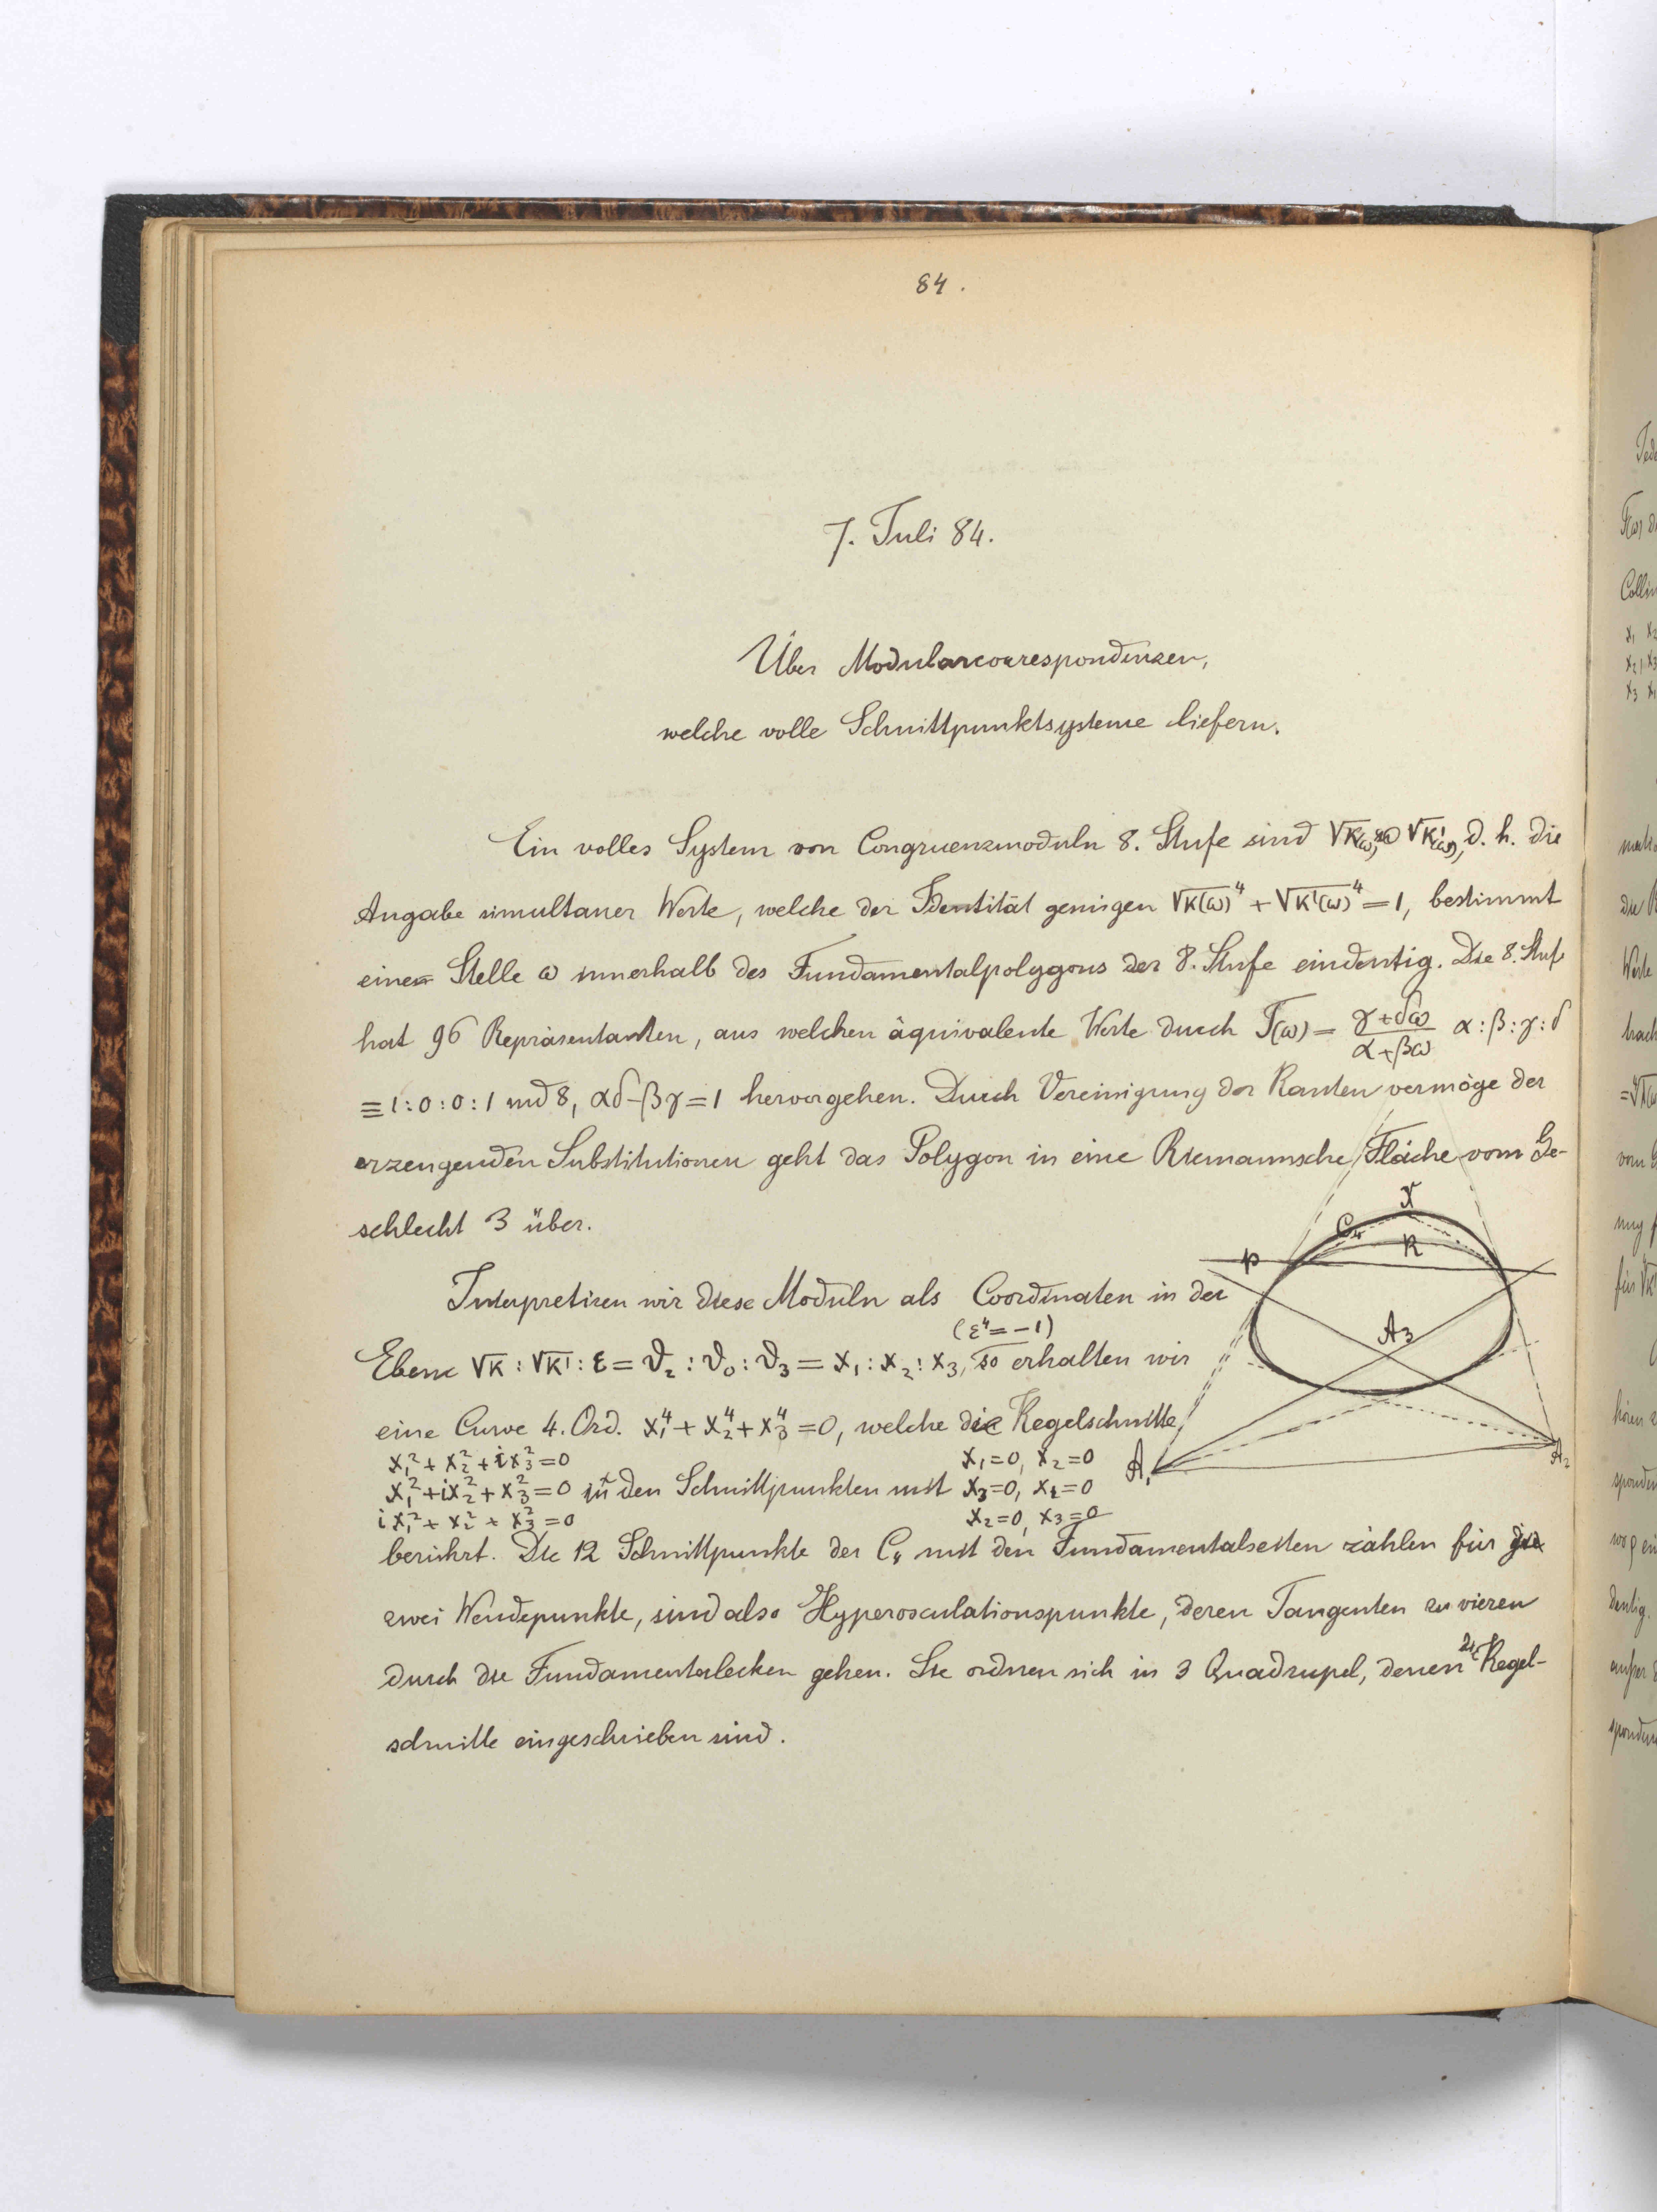 84.
7. Juli 84.
Über Modularcorrespondenzen,
welche volle Schnittpunktsysteme liefern.
Ein volles System von Congruenzmoduln 8. Stufe sind √K(ω), √K'(ω), d. h. die
Angabe simultaner Werte, welche der Identität genügen √K(ω)⁴ + √K'(ω)⁴ = 1, bestimmt
eine Stelle ω innerhalb des Fundamentalpolygons der 8. Stufe eindeutig. Die 8. Stufe
hat 96 Repräsentanten, aus welchen äquivalente Werte durch T(ω) = (γ+δω)/(α+βω) α:β:γ:δ
≡ 1:0:0:1 mod 8, αδ-βγ=1 hervorgehen. Durch Vereinigung der Kanten vermöge der
erzeugenden Substitutionen geht das Polygon in eine Riemannsche Fläche vom Ge-
schlecht 3 über.
Interpretiren wir diese Moduln als Coordinaten in der
(ε⁴ = -1)
Ebene √K : √K' : ε = ϑ₂ : ϑ₀ : ϑ₃ = x₁ : x₂ : x₃, so erhalten wir
eine Curve 4. Ord. x₁⁴ + x₂⁴ + x₃⁴ = 0, welche die Kegelschnitte
x₁² + x₂² + ix₃² = 0 x₁=0, x₂=0
x₁² + ix₂² + x₃² = 0 in den Schnittpunkten mit x₃=0, x₁=0
ix₁² + x₂² + x₃² = 0 x₂=0, x₃=0
berührt. Die 12 Schnittpunkte der C₄ mit den Fundamentalseiten zählen für je
zwei Wendepunkte, sind also Hyperosculationspunkte, deren Tangenten zu vieren
durch die Fundamentalecken gehen. Sie ordnen sich in 3 Quadrupel, denen 2 Kegel-
schnitte eingeschrieben sind.
C₄
K
p
A₃
A₁
A₂